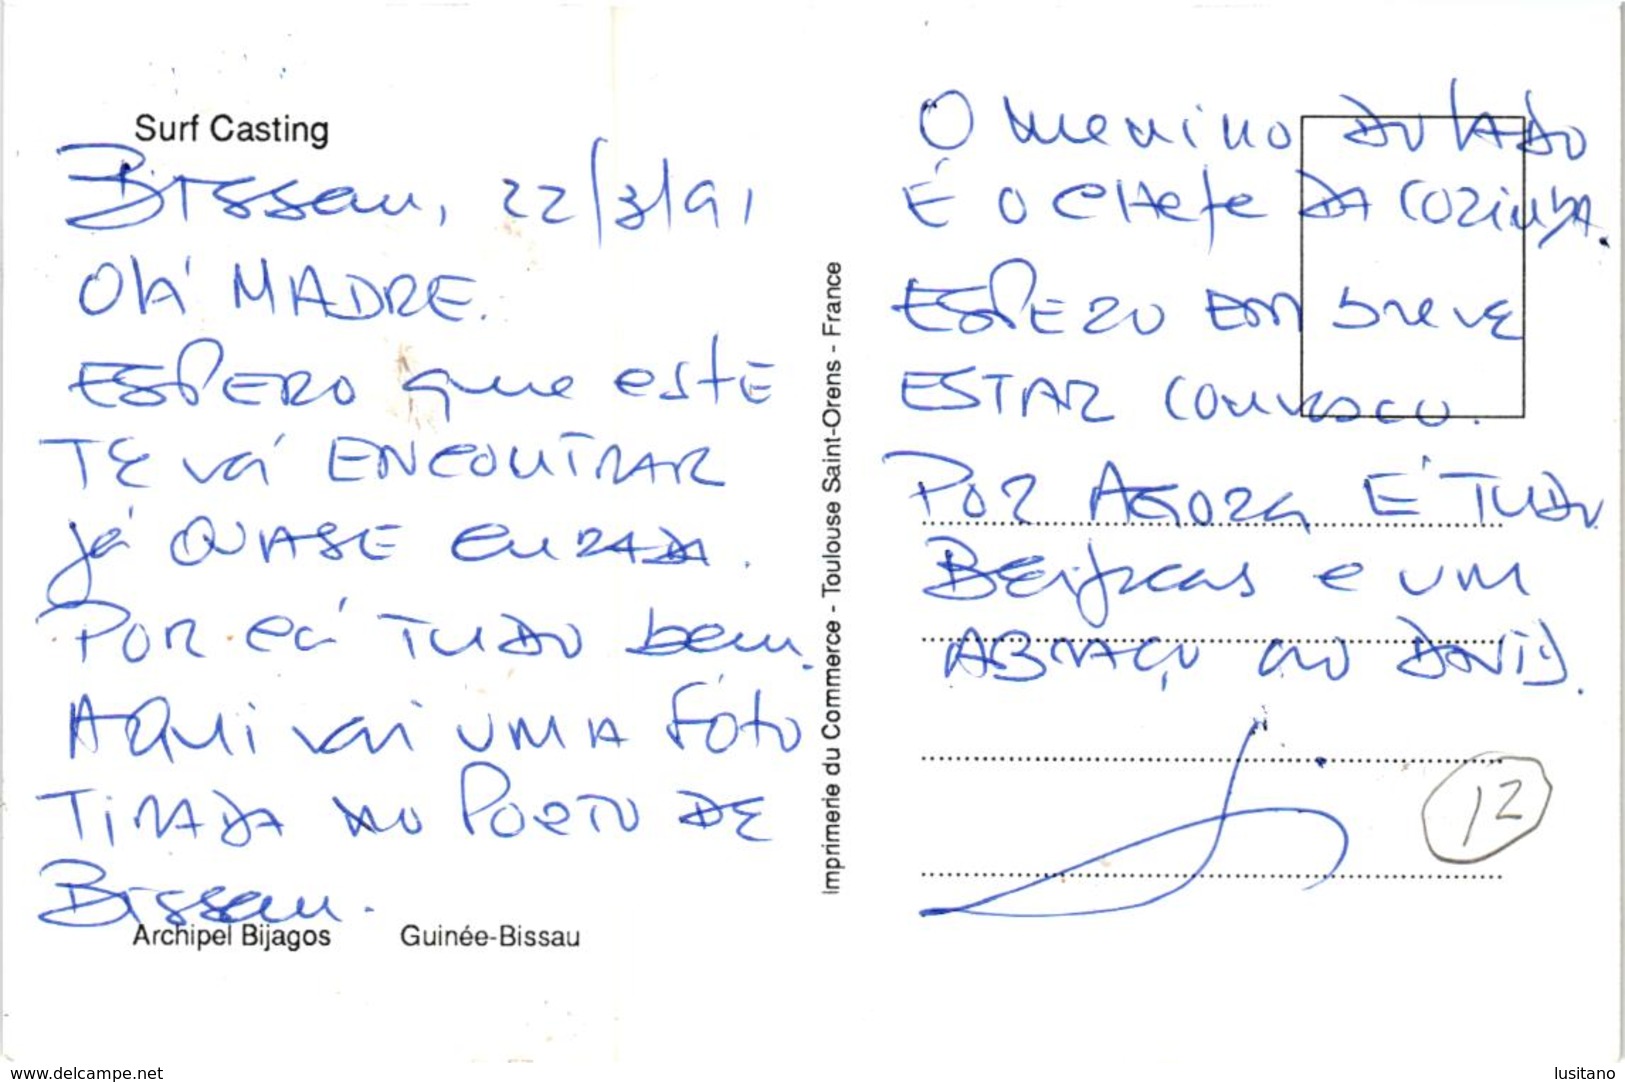 Surf Casting
Bissau, 22/3/91
Olá MADRE.
ESPERO que este
TE vá ENCONTRAR
já QUASE CURADA.
POR cá TUDO bem.
AQUI vai UMA FOTO
TIRADA NO PORTO DE
BISSAU.
Archipel Bijagos Guinée-Bissau
Imprimerie du Commerce - Toulouse Saint-Orens - France
O menino DO LADO
É O CHEFE DA COZINHA.
ESPERO EM breve
ESTAR CONVOSCO.
POR AGORA É TUDO
BEIJOCAS e UM
ABRAÇO AO DAVID.
12
www.delcampe.net
lusitano